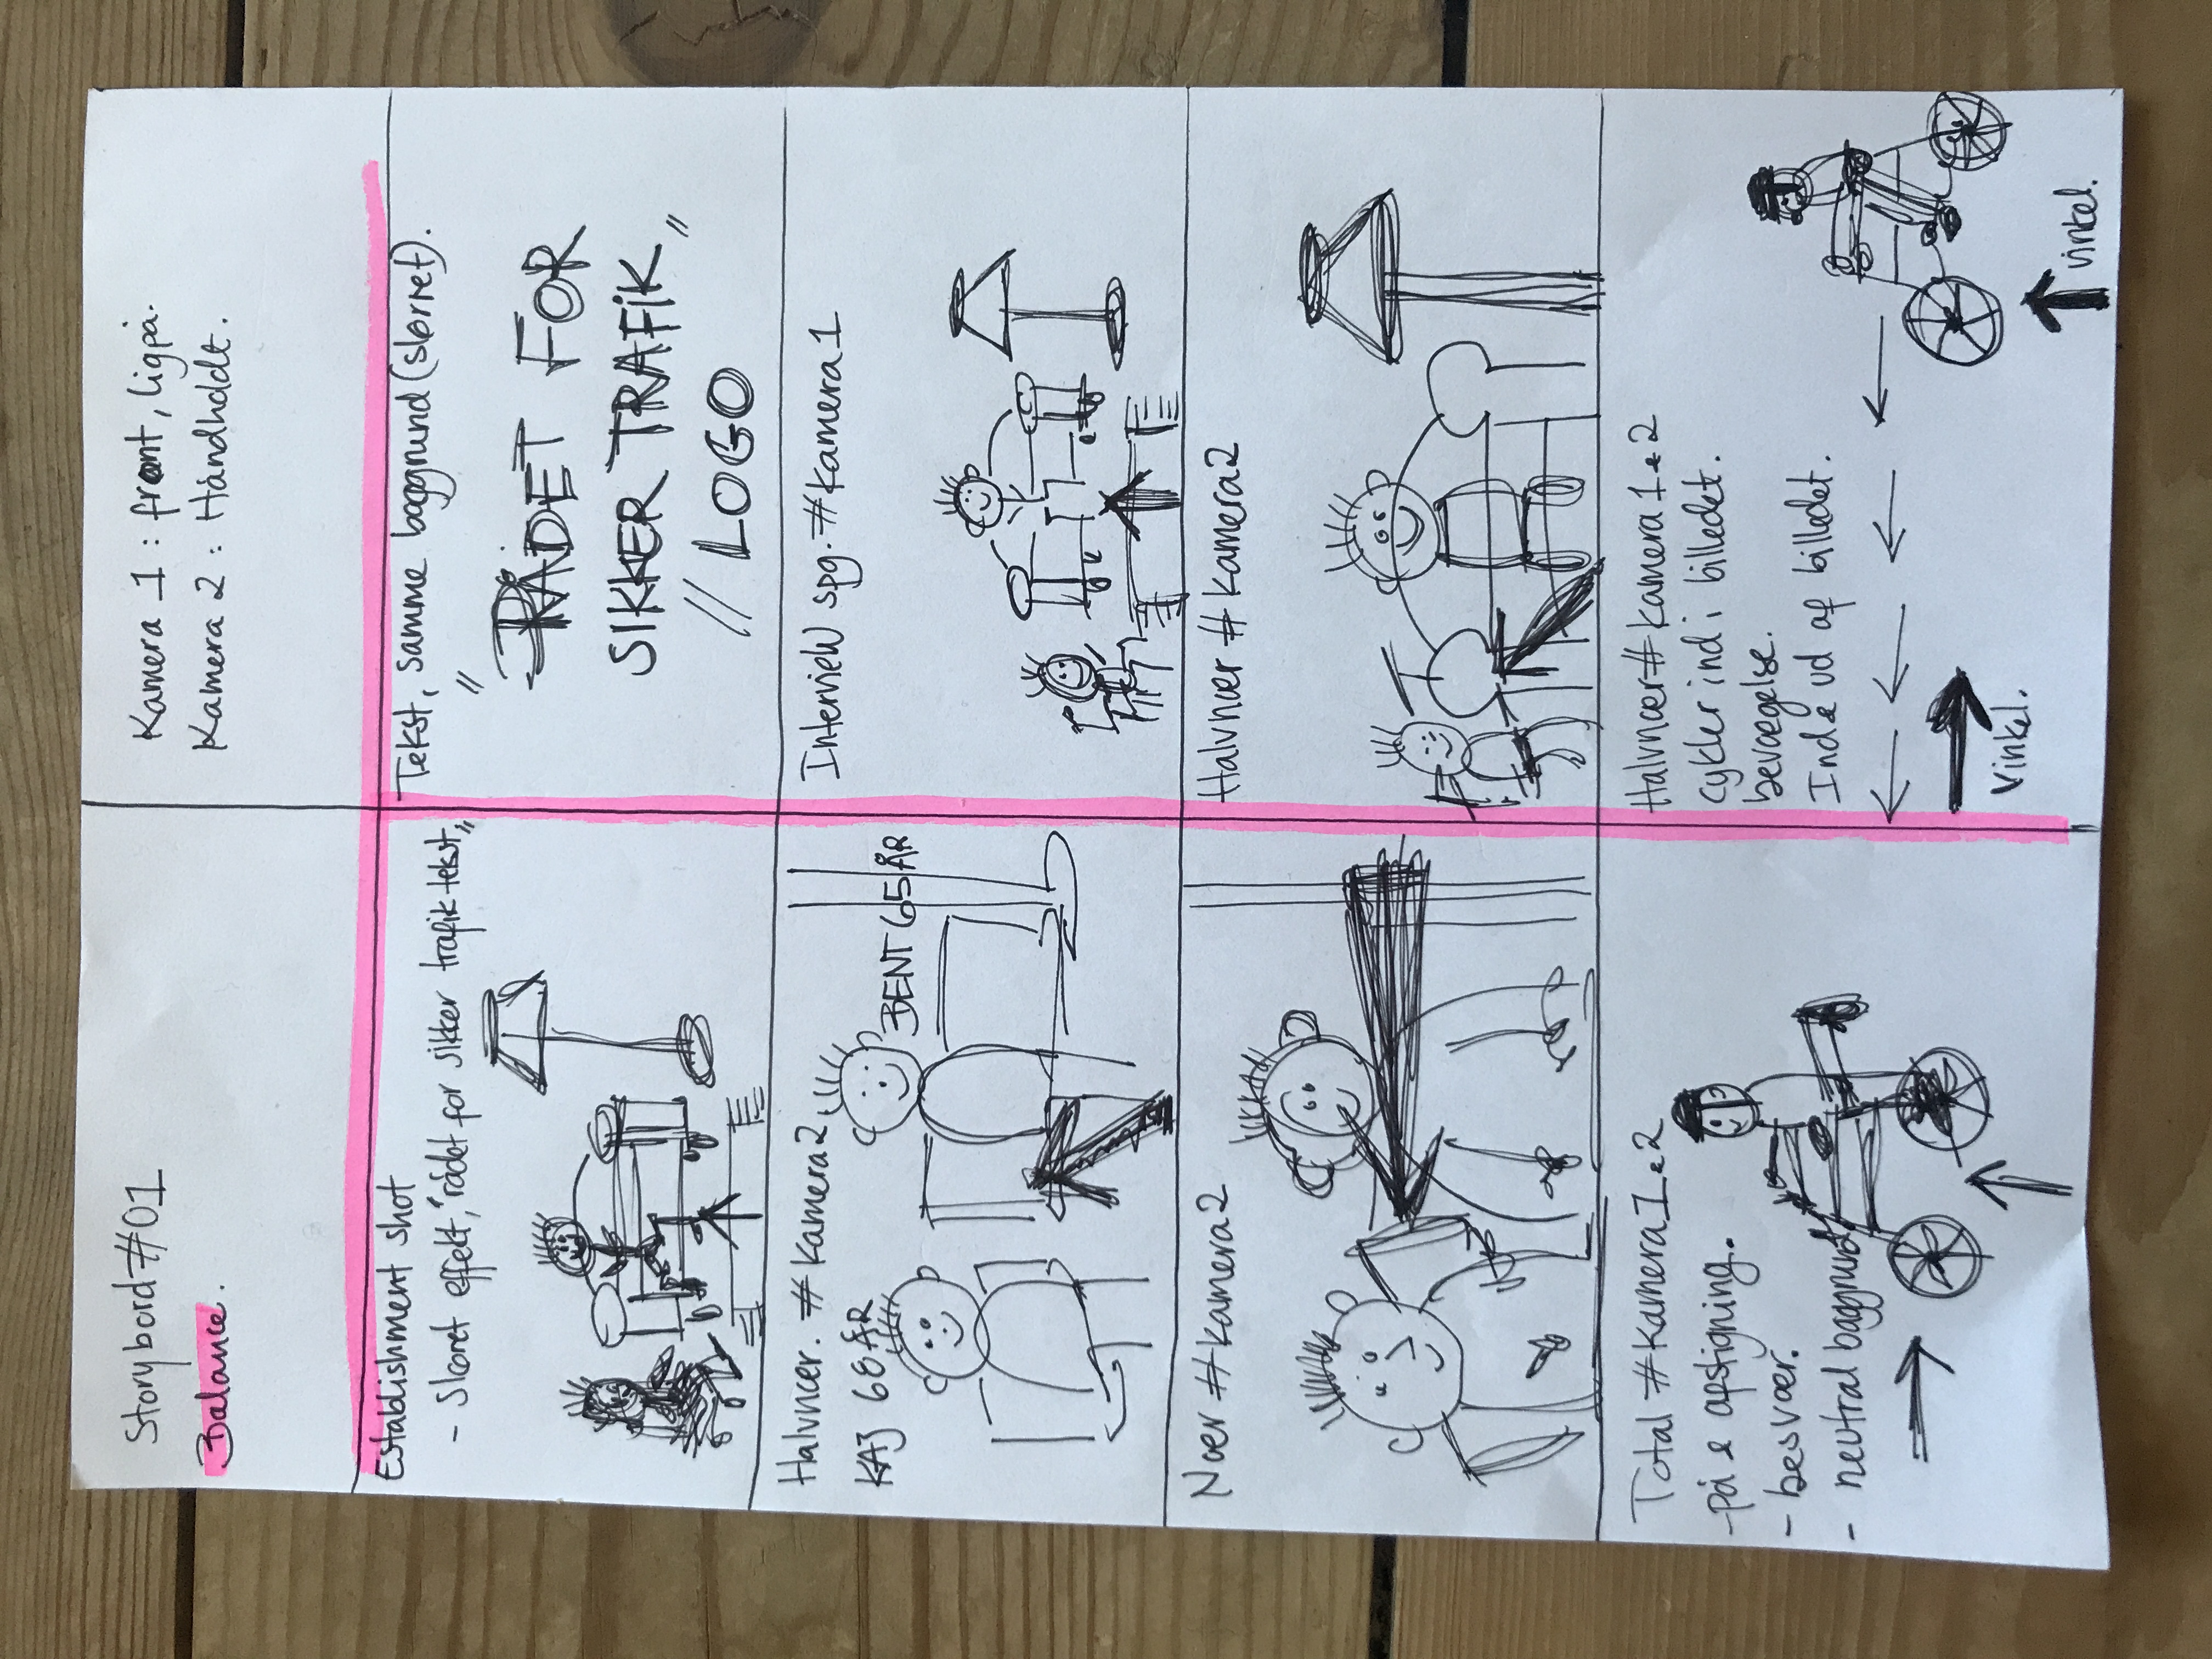 Storybord #01
Balance.
Kamera 1 : front, ligpå.
Kamera 2 : Håndholdt.
Establishment shot
- Sløret effekt, "rådet for sikker trafik tekst"
Tekst, samme baggrund (sløret).
"RÅDET FOR
SIKKER TRAFIK"
// LOGO
Halvnær. #kamera2
KAJ 68 ÅR
BENT 65 ÅR
Interview spg. #kamera1
Nær #kamera2
Halvnær #kamera2
Total #kamera1&2
- på & afstigning.
- besvær.
- neutral baggrund
Halvnær #kamera1&2
cykler ind i billedet.
bevægelse.
Ind & ud af billedet.
Vinkel.
vinkel.